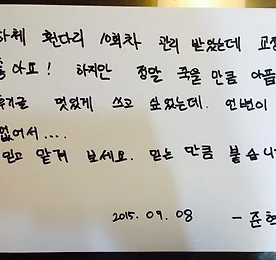 하체 휜다리 10회차 관리 받았는데 교정
좋아요! 하지만 정말 죽을 만큼 아픕
후기글 멋있게 쓰고 싶었는데. 언변이
없어서....
믿고 맡겨 보세요. 믿는 만큼 붑습니
2015. 09. 08 - 준현